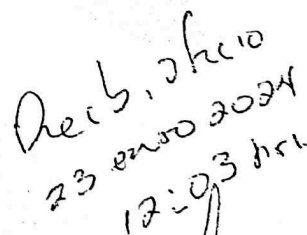 Recibi oficio
23 enero 2024
12:03 hrs.